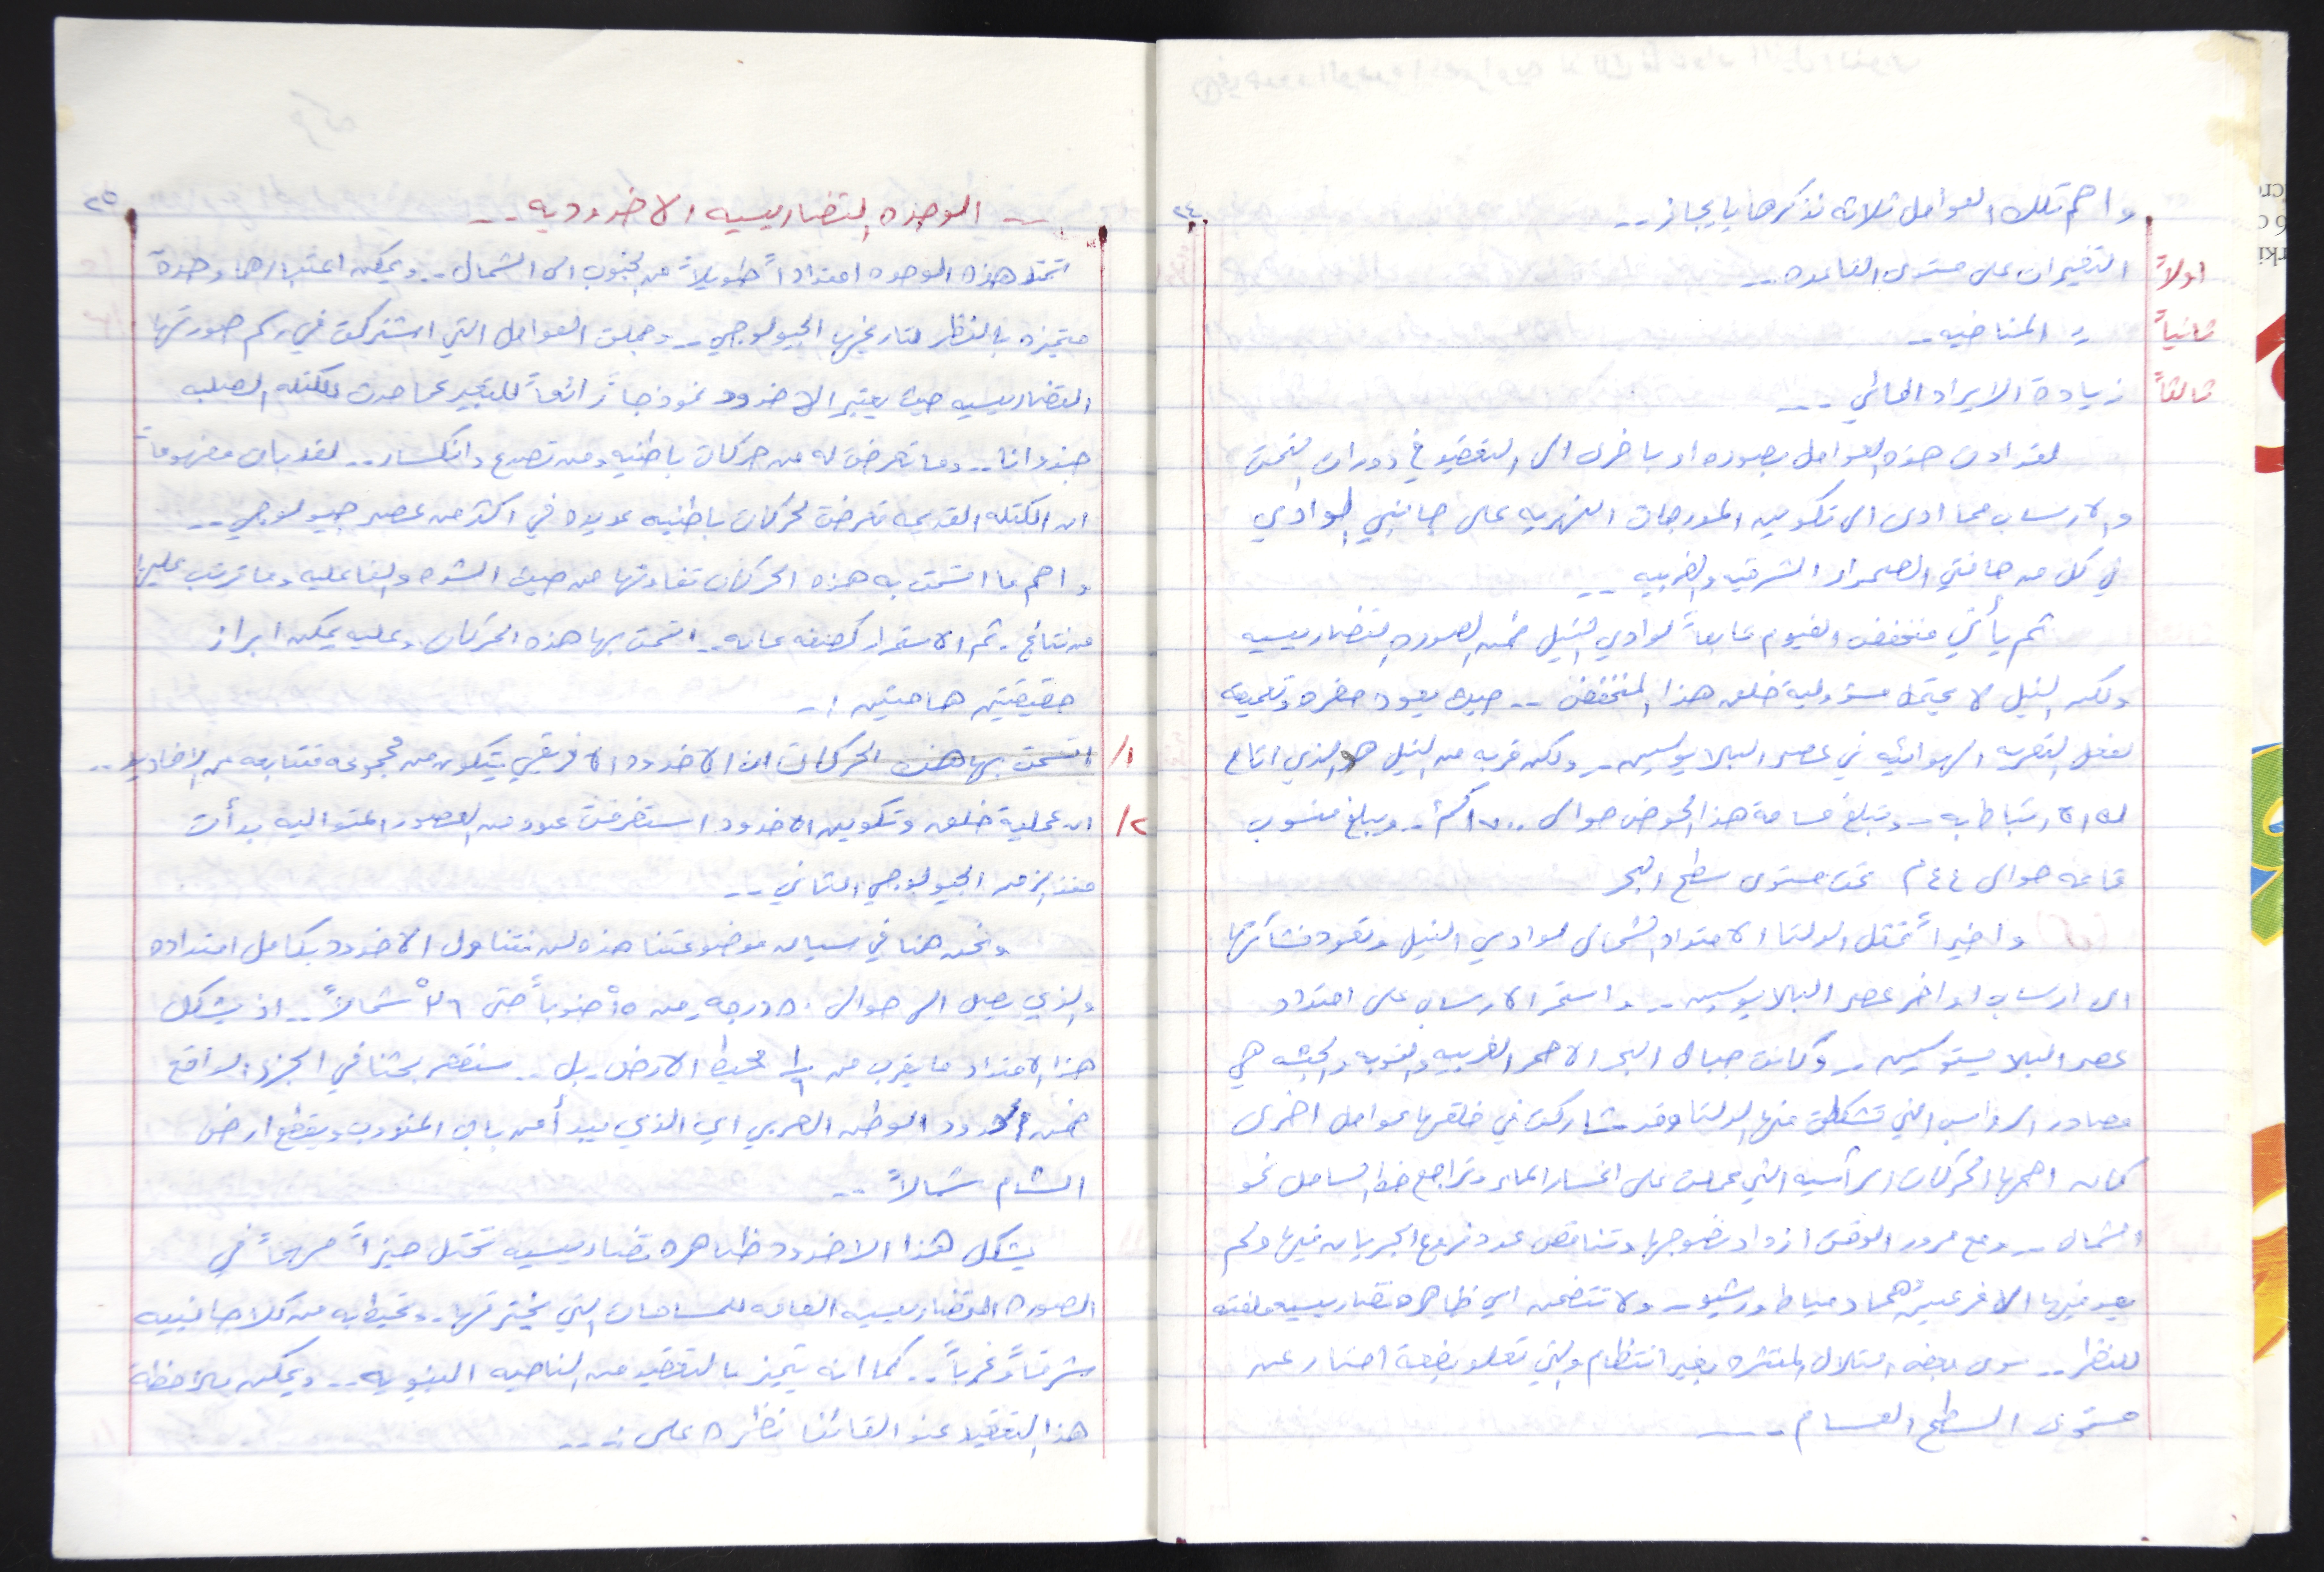 ٢٤
واهم تلك العوامل ثلاثة نذكرها بايجاز --
اولاً التغيرات على مستوى القاعده --
ثانياً = المناخيه --
ثالثاً زيادة الايراد المائي ---
لقد ادت هذه العوامل بصوره او باخرى الى التعقيد في دورات النحت
والارساب مما ادى الى تكوين المدرجات النهريه على جانبي الوادي
في كل من حافتي الصحراء الشرقيه والغربيه --
ثم يأتي منخفض الفيوم تابعاً لوادي النيل ضمن الصوره التضاريسيه
ولكن النيل لا يحتمل مسؤولية خلق هذا المنخفض -- حيث يعود حفره وتعميقه
لفعل التعريه الهوائيه في عصر البلايوسين -- ولكن قربه من النيل هو الذي اتاح
له الارتباط به -- وتبلغ مساحة هذا الحوض حوالى ١٧٠٠كم٢ -- ويبلغ منسوب
قاعه حوالى ٤٤م تحت مستوى سطح البحر
واخيراً تمثل الدلتا الامتداد الشمالى لوادي النيل وتعود نشأتها
الى ارساب اواخر عصر البلايوسين -- واستمر الارساب على امتداد
عصر البلايستوسين -- وكانت جبال البحر الاحمر الغربيه والنوبه والحبشه هي
مصادر الرواسب التي تشكلت منها الدلتا وقد شاركت في خلقها عوامل اخرى
كان اهمها الحركات الرأسيه التي عملت على انحسار الماء وتراجع خط الساحل نحو
الشمال -- ومع مرور الوقت ازداد نضوجها وتناقص عدد فروع الجريان فيها ولم
يعد فيها الا فرعين هما دمياط ورشيد -- ولا تتضمن اي ظاهره تضاريسيه ملفته
للنظر -- سوى بعض التلال المنتشره بغير انتظام والتي تعلو بضعة امتار عن
مستوى السطح العام ---
٢٥
-- الوحده التضاريسيه الاخدوديه --
تمتد هذه الوحده امتداداً طويلاً من الجنوب الى الشمال -- ويمكن اعتبارها وحدة
متميزه بالنظر لتاريخها الجيولوجي -- وجملة العوامل التي اشتركت في رسم صورتها
التضاريسيه حيث يعتبر الاخدود نموذجاً رائعاً للتعبير عما حدث للكتله الصلبه
جندوانا -- وما تعرضت له من حركات باطنيه ومن تصدع وانكسار -- لقد بات مفهوماً
ان الكتله القديمه تعرضت لحركات باطنيه عديده في اكثر من عصر جيولوجي --
واهم ما اتسمت به هذه الحركات تفاوتها من حيث الشده والفاعليه وما ترتب عليها
من نتائج - ثم الاستمرار كصفه عامه -- اتسمت بها هذه الحركات وعليه يمكن ابراز
حقيقتين هامتين :-
١/ اتسمت بها هذه الحركات ان الاخدود الافريقي يتكون من مجموعه متتابعه من الاخاديد --
٢/ ان عملية خلق وتكوين الاخدود استغرقت عدد من العصور المتواليه بدأت
منذ الزمن الجيولوجي الثاني --
ونحن هنا في سياق موضوعتنا هذه لن نتناول الاخدود بكامل امتداده
والذي يصل الى حوالى ٥٠ درجه من ١٥ْ جنوباً حتى ٣٦ْ شمالاً -- اذ يشكل
هذا الامتداد ما يقرب من محيط الارض - بل -- سنقصر بحثنا في الجزء الواقع
ضمن حدود الوطن العربي اي الذي يبدأ من باب المندب ويقطع ارض
الشام شمالاً --
يشكل هذا الاخدود ظاهره تضاريسيه تحتل حيزاً مهماً في
الصوره التضاريسيه العامه للمساحات التي يخترقها -- وتحيط به من كلا جانبيه
شرقاً وغرباً -- كما انه يتميز بالتعقيد من الناحيه البنيويه -- ويمكن ملاحظة
هذا التعقيد عند القائنا نظره على : --